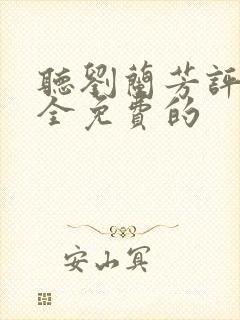 聽劉蘭芳評
全免費的
安山冥